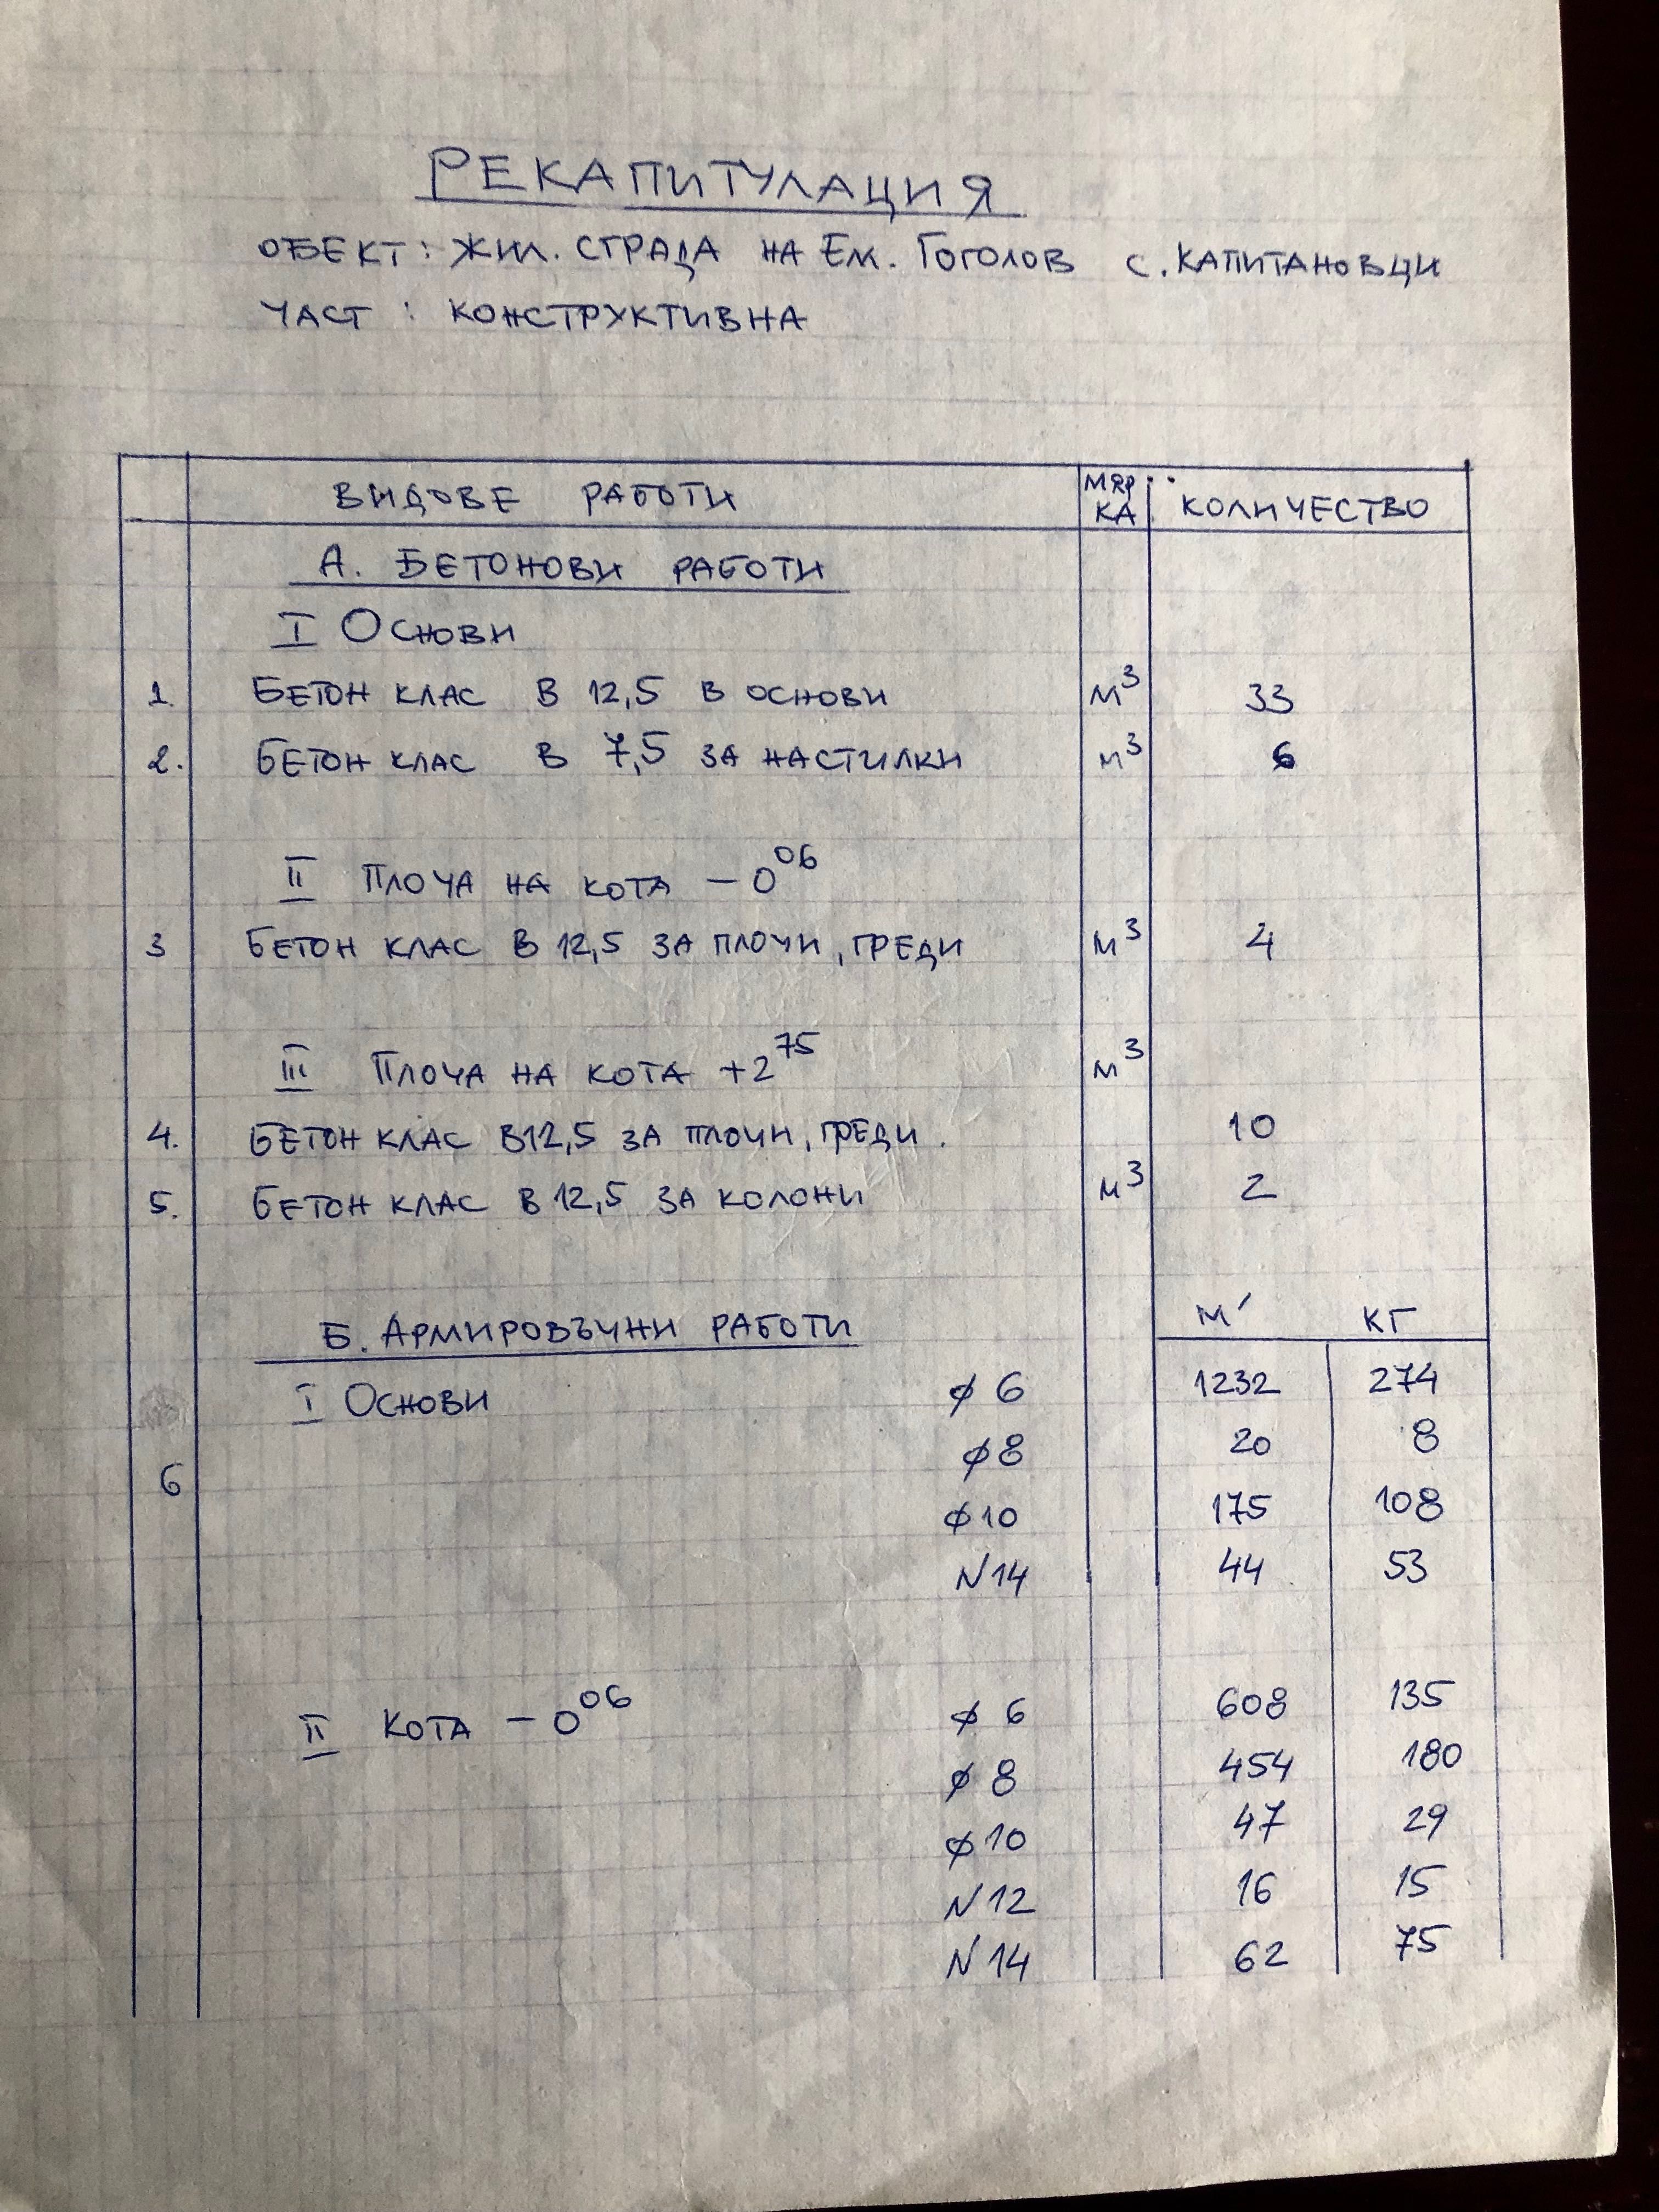 РЕКАПИТУЛАЦИЯ
ОБЕКТ: ЖИЛ. СГРАДА НА ЕМ. ГОГОЛОВ С. КАПИТАНОВЦИ
ЧАСТ: КОНСТРУКТИВНА
ВИДОВЕ РАБОТИ МЯРКА КОЛИЧЕСТВО
А. БЕТОНОВИ РАБОТИ
I ОСНОВИ
1. БЕТОН КЛАС В 12,5 В ОСНОВИ М³ 33
2. БЕТОН КЛАС В 7,5 ЗА НАСТИЛКИ М³ 6
II ПЛОЧА НА КОТА -0⁰⁶
3 БЕТОН КЛАС В 12,5 ЗА ПЛОЧИ, ГРЕДИ М³ 4
III ПЛОЧА НА КОТА +2⁷⁵ М³
4. БЕТОН КЛАС В12,5 ЗА ПЛОЧИ, ГРЕДИ. 10
5. БЕТОН КЛАС В 12,5 ЗА КОЛОНИ М³ 2
Б. АРМИРОВЪЧНИ РАБОТИ М' КГ
I ОСНОВИ ϕ 6 1232 274
ϕ8 20 8
6 ϕ10 175 108
N14 44 53
II КОТА -0⁰⁶ ϕ 6 608 135
ϕ 8 454 180
ϕ10 47 29
N12 16 15
N14 62 75